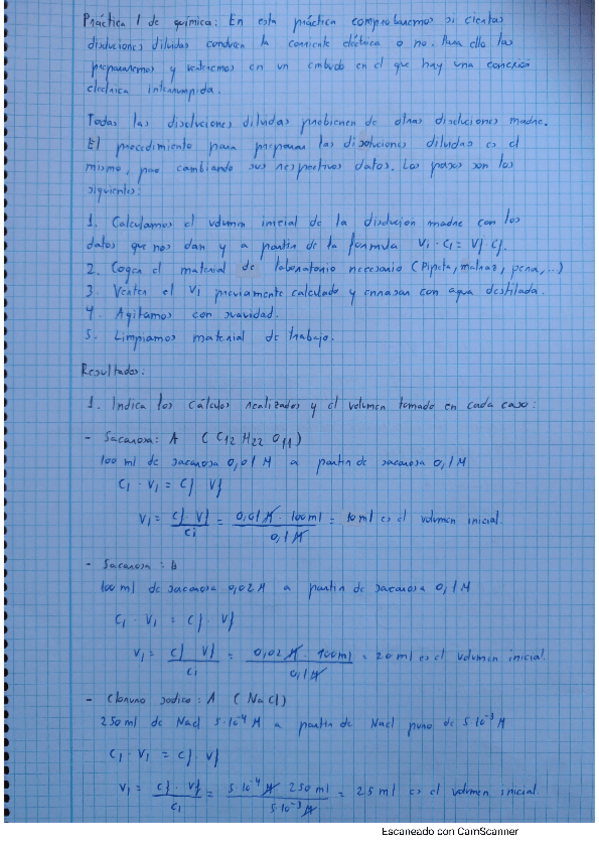 Práctica 1 de química: En esta práctica comprobaremos si ciertas
disoluciones diluidas conducen la corriente eléctrica o no. Para ello las
prepararemos y verteremos en un embudo en el que hay una conexión
eléctrica interrumpida.
Todas las disoluciones diluidas probienen de otras disoluciones madre.
El procedimiento para preparar las disoluciones diluidas es el
mismo, pero cambiando sus respectivos datos. Los pasos son los
siguientes:
1. Calculamos el volumen inicial de la disolución madre con los
datos que nos dan y a partir de la fórmula Vi · Ci = Vf · Cf.
2. Coger el material de laboratorio necesario (Pipeta, matraz, pera,...)
3. Verter el Vi previamente calculado y enrasar con agua destilada.
4. Agitamos con suavidad.
5. Limpiamos material de trabajo.
Resultados:
1. Indica los cálculos realizados y el volumen tomado en cada caso:
- Sacarosa: A (C12 H22 O11)
100 ml de sacarosa 0,01 M a partir de sacarosa 0,1 M
Ci · Vi = Cf Vf
Vi = Cf Vf / Ci = 0,01 M · 100 ml / 0,1 M = 10 ml es el volumen inicial.
- Sacarosa: b
100 ml de sacarosa 0,02 M a partir de sacarosa 0,1 M
Ci · Vi = Cf · Vf
Vi = Cf Vf / Ci = 0,02 M · 100 ml / 0,1 M = 20 ml es el volumen inicial.
- Cloruro sodico: A (NaCl)
250 ml de Nacl 5·10⁻⁴ M a partir de Nacl puro de 5·10⁻³ M
Ci · Vi = Cf · Vf
Vi = Cf · Vf / Ci = 5·10⁻⁴ M 250 ml / 5·10⁻³ M = 25 ml es el volumen inicial.
Escaneado con CamScanner